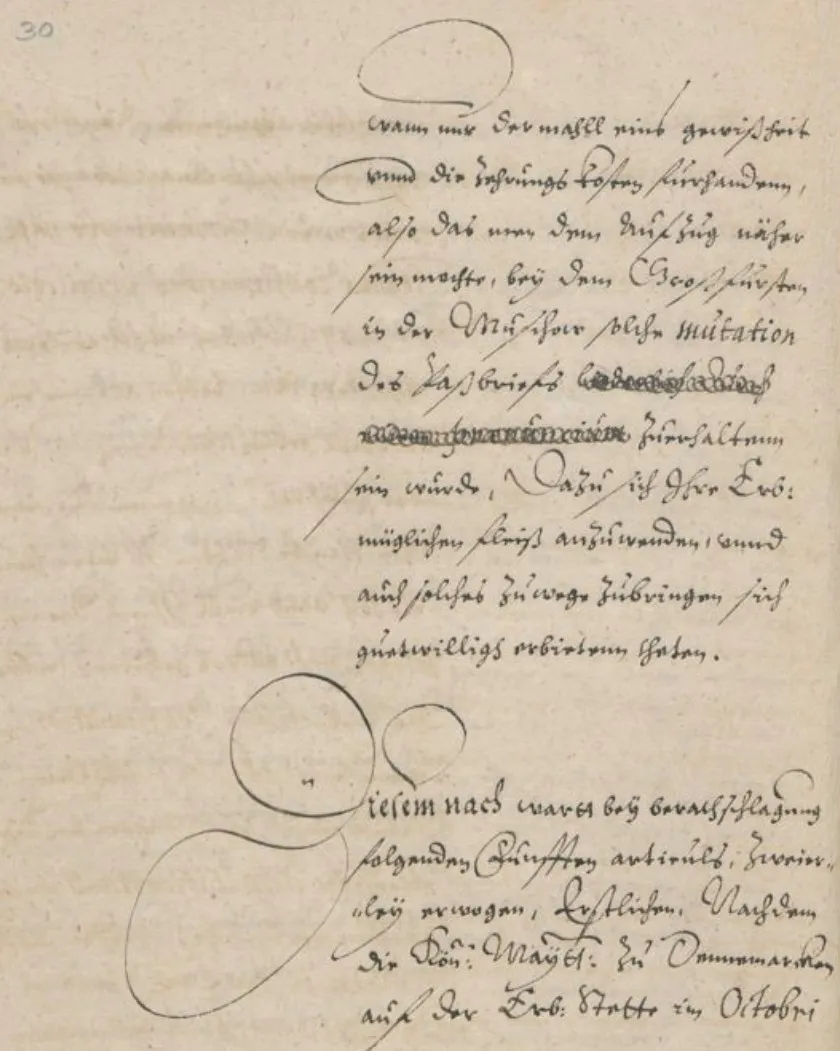 30
wann nur dermahll eins gewißheit
vnnd die Zehrungs kosten fürhandenn,
also das man dem Aufzug näher
sein mochte, bey dem Großfürsten
in der Muschow solche mutation
des Paßbriefs
zuerhaltenn
sein würde, Dazu sich Ihre Erb:
müglichen fleiß anzuwenden, vnnd
auch solches zuwege zubringen sich
guetwilligs erbietenn theten.
Diesem nach wartt bey berathschlagung
folgenden Fünfften articuls, Zweier-
ley erwogen, Erstlichen, Nachdem
die Kön: Maytt: zu Dennemarcken
auf der Erb: Stette im Octobri